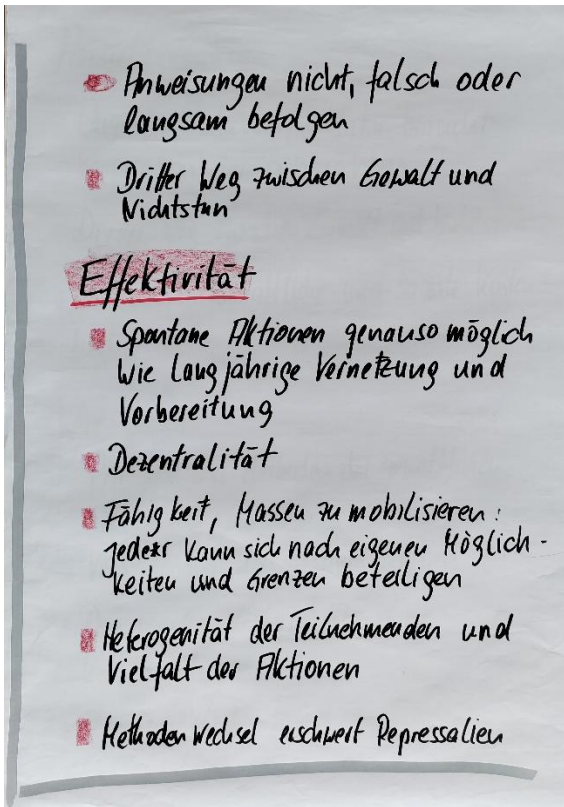 Anweisungen nicht, falsch oder
langsam befolgen
Dritter Weg zwischen Gewalt und
Nichtstun
Effektivität
Spontane Aktionen genauso möglich
wie langjährige Vernetzung und
Vorbereitung
Dezentralität
Fähigkeit, Massen zu mobilisieren:
jede*r kann sich nach eigenen Möglich-
keiten und Grenzen beteiligen
Heterogenität der Teilnehmenden und
Vielfalt der Aktionen
Methodenwechsel erschwert Repressalien